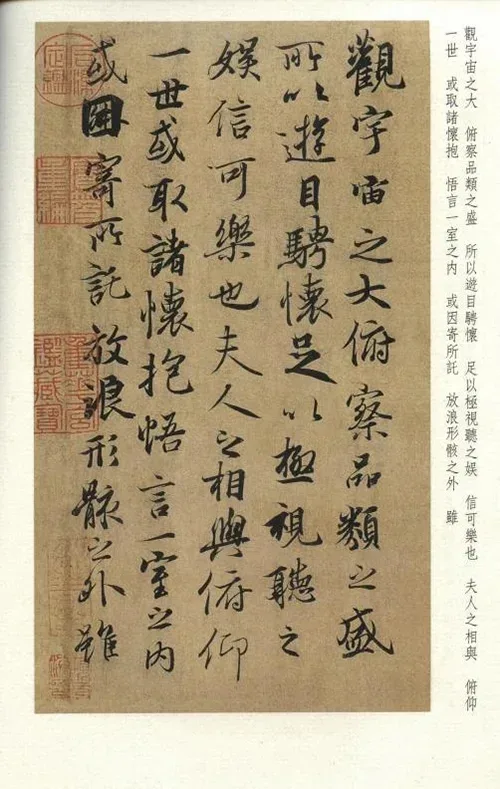 觀宇宙之大 俯察品類之盛 所以遊目騁懷 足以極視聽之娱 信可樂也 夫人之相與 俯仰
一世 或取諸懷抱 悟言一室之内 或因寄所託 放浪形骸之外 雖
觀宇宙之大俯察品類之盛
所以遊目騁懷足以極視聽之
娱信可樂也夫人之相與俯仰
一世或取諸懷抱悟言一室之内
或因寄所託放浪形骸之外雖